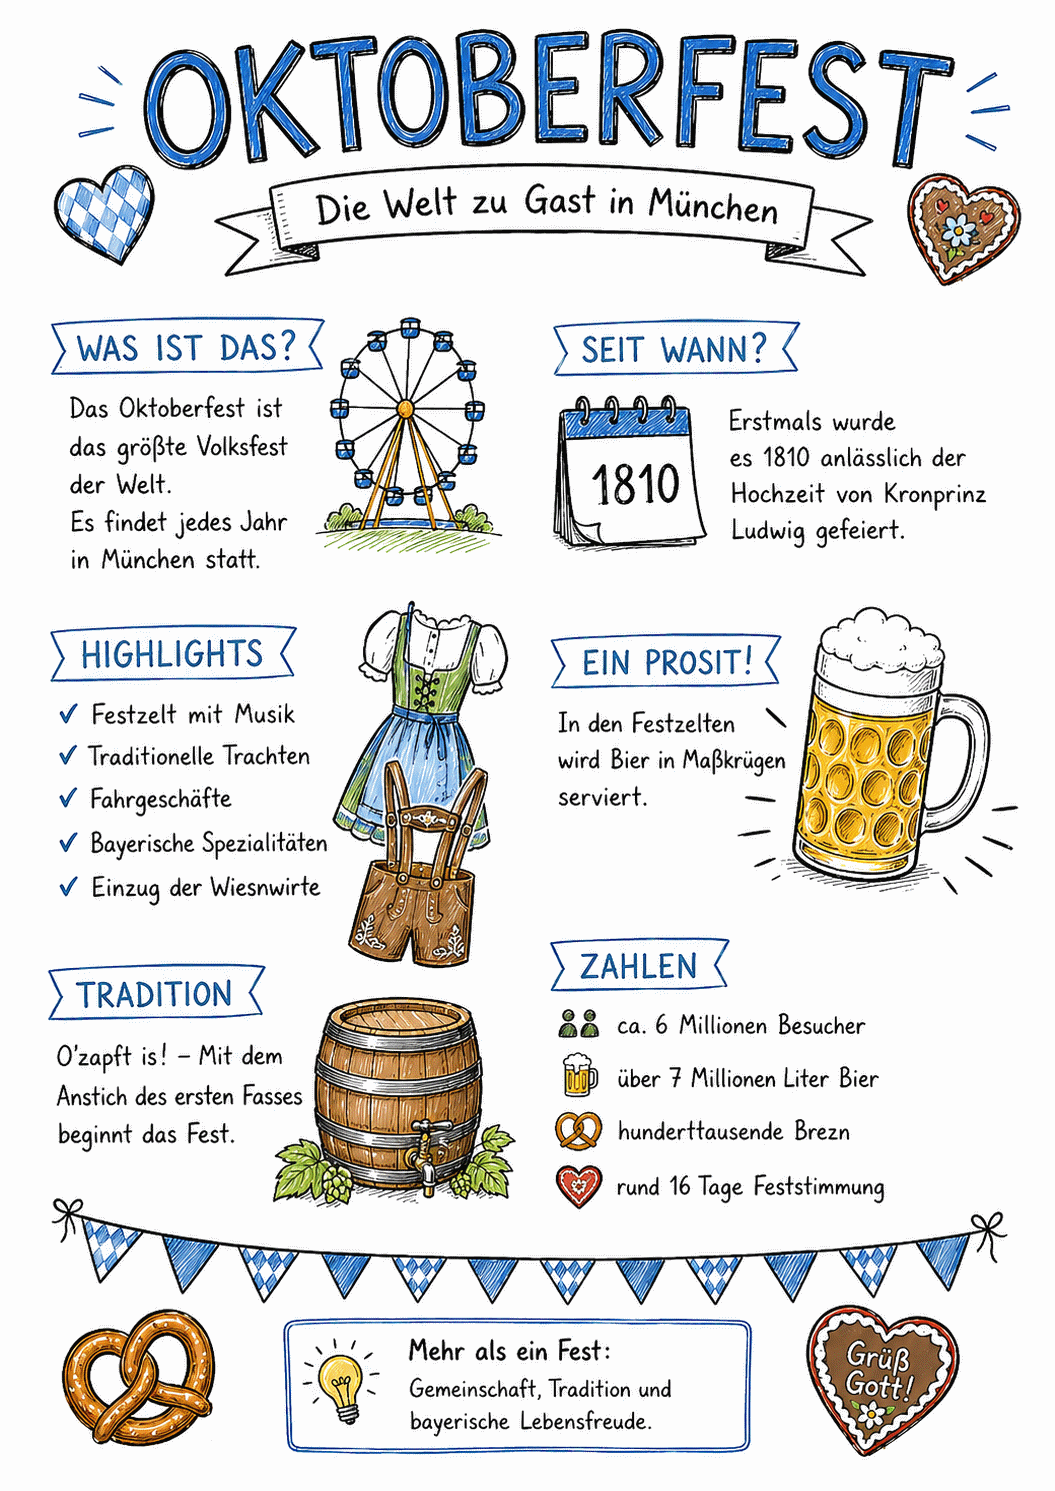 OKTOBERFEST
Die Welt zu Gast in München
WAS IST DAS?
Das Oktoberfest ist
das größte Volksfest
der Welt.
Es findet jedes Jahr
in München statt.
SEIT WANN?
1810
Erstmals wurde
es 1810 anlässlich der
Hochzeit von Kronprinz
Ludwig gefeiert.
HIGHLIGHTS
✓ Festzelt mit Musik
✓ Traditionelle Trachten
✓ Fahrgeschäfte
✓ Bayerische Spezialitäten
✓ Einzug der Wiesnwirte
EIN PROSIT!
In den Festzelten
wird Bier in Maßkrügen
serviert.
TRADITION
O'zapft is! – Mit dem
Anstich des ersten Fasses
beginnt das Fest.
ZAHLEN
ca. 6 Millionen Besucher
über 7 Millionen Liter Bier
hunderttausende Brezn
rund 16 Tage Feststimmung
Mehr als ein Fest:
Gemeinschaft, Tradition und
bayerische Lebensfreude.
Grüß
Gott!